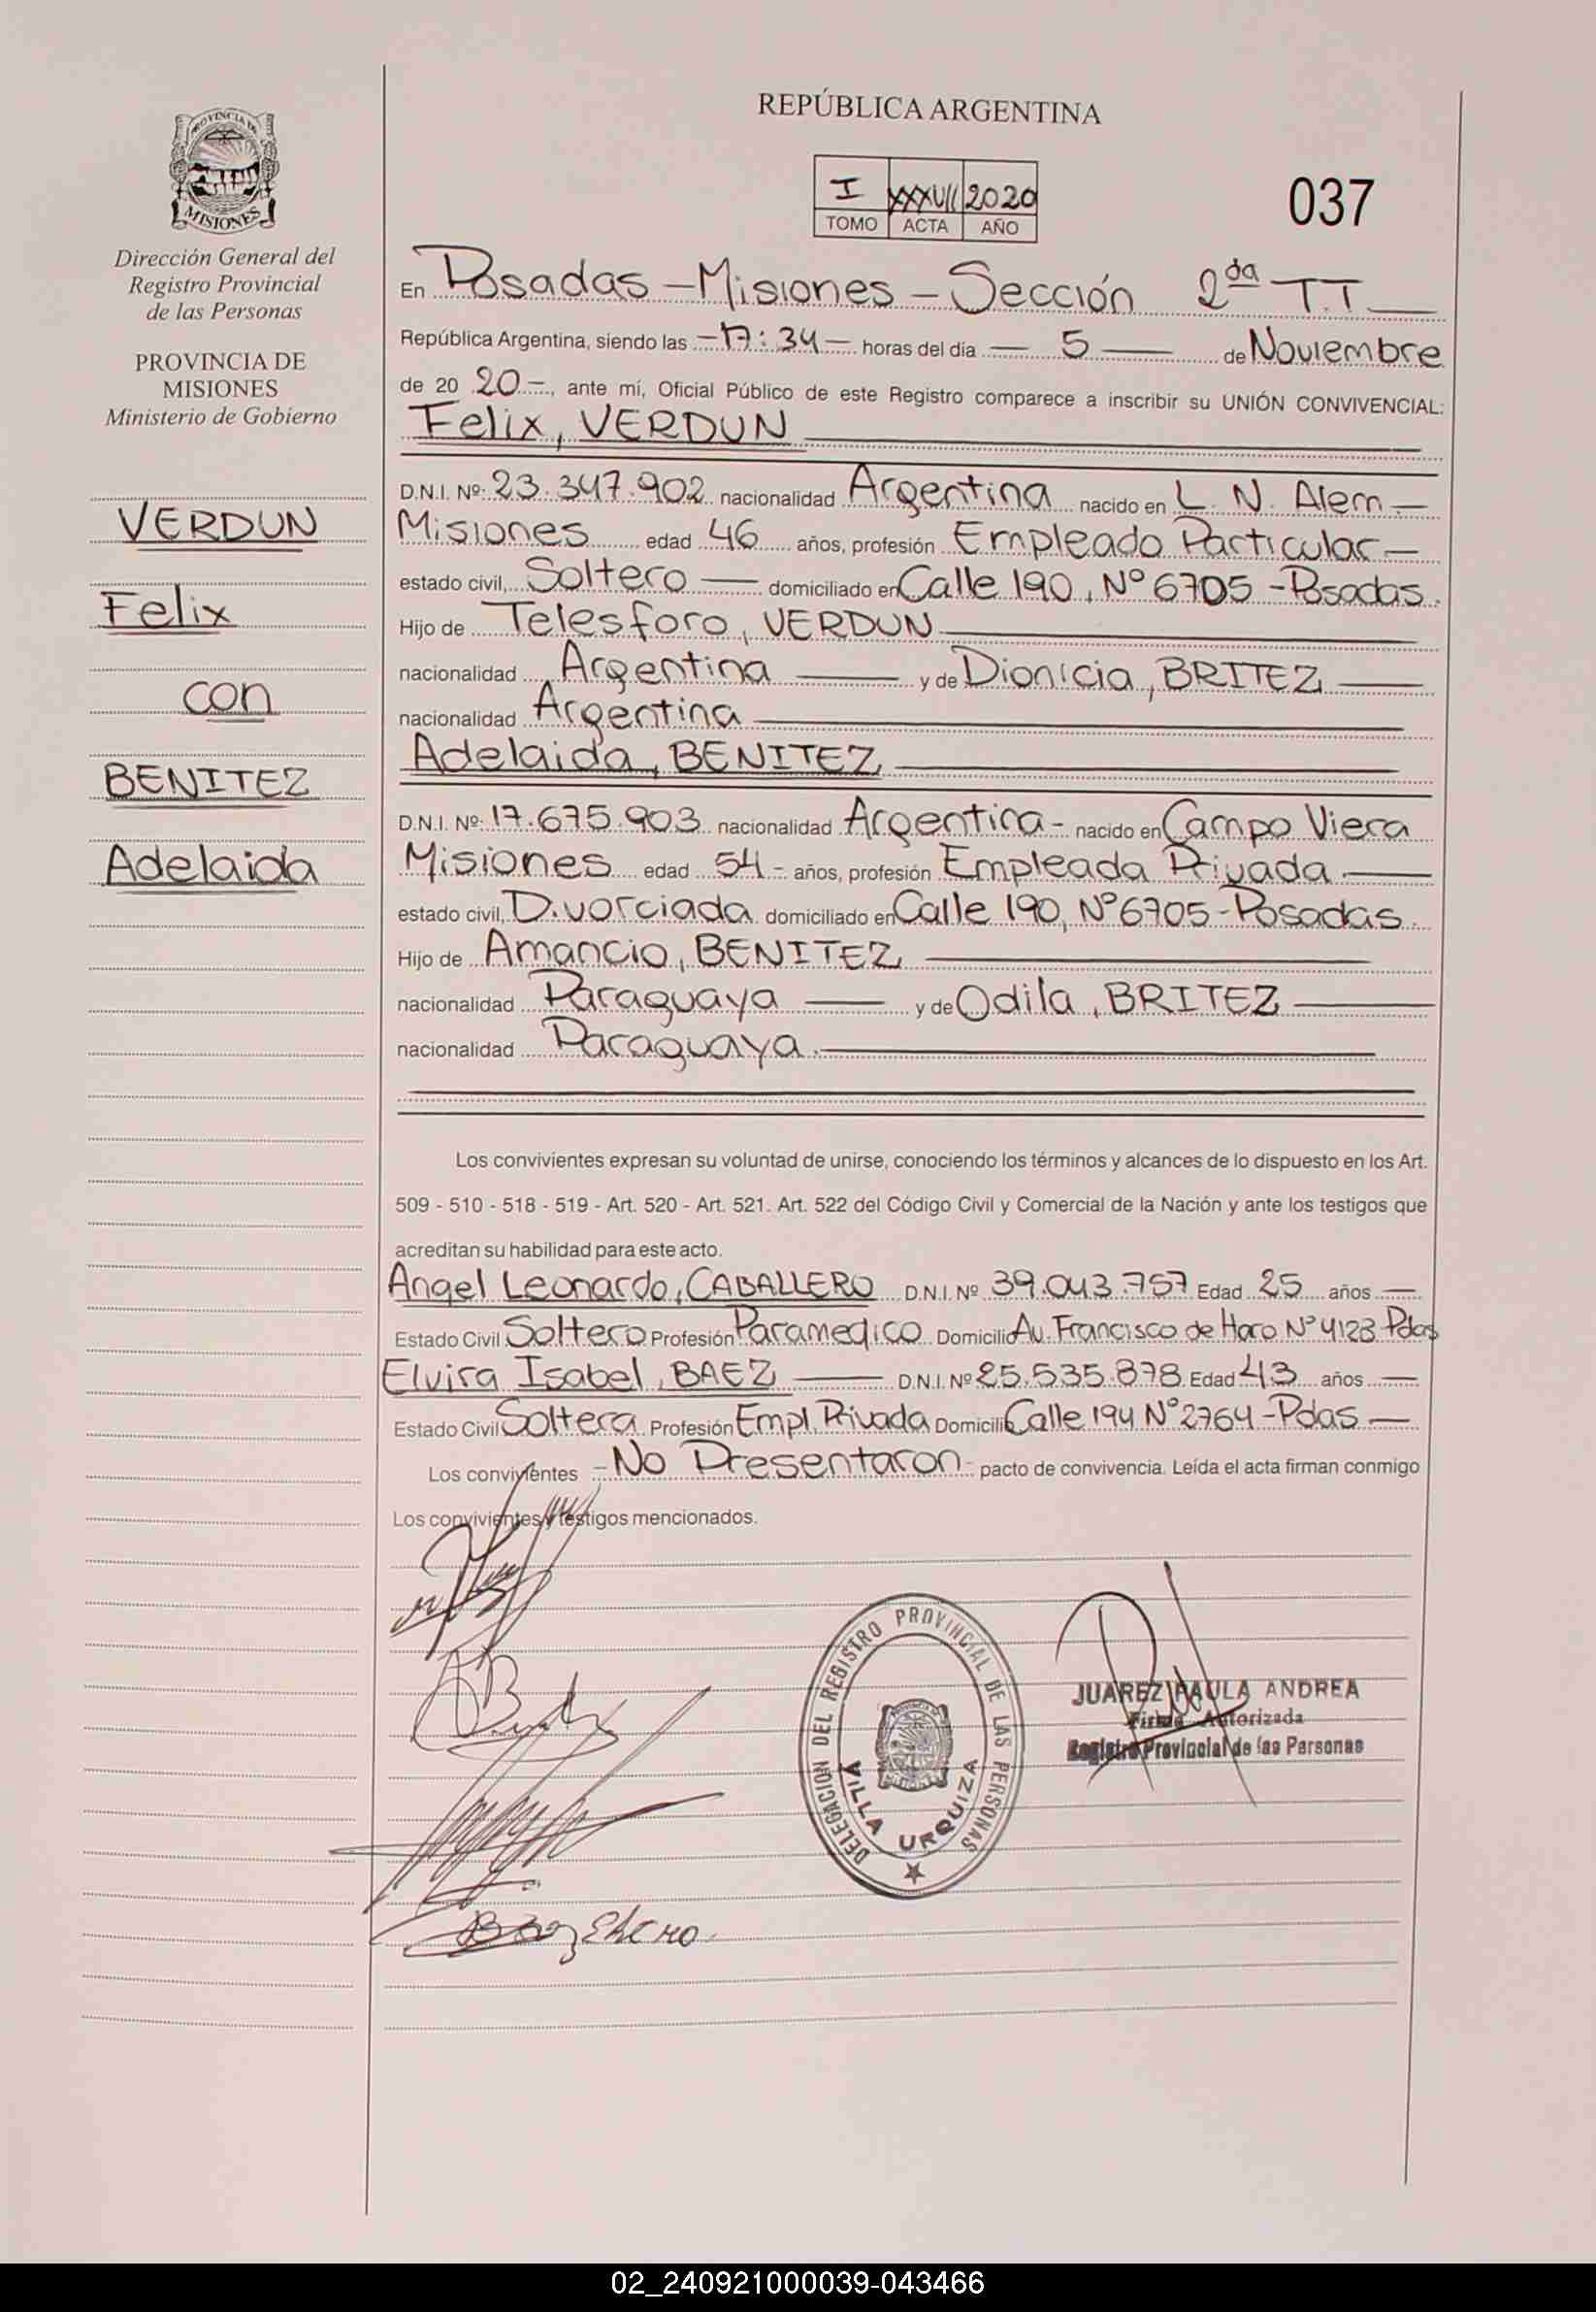 REPÚBLICA ARGENTINA
PROVINCIA DE
MISIONES
I XXXVII 2020
TOMO ACTA AÑO
037
Dirección General del
Registro Provincial
de las Personas
PROVINCIA DE
MISIONES
Ministerio de Gobierno
VERDUN
Felix
con
BENITEZ
Adelaida
En Posadas - Misiones - Sección 2da T.T.
República Argentina, siendo las - 17:34 - horas del día - 5 - de Noviembre
de 20 20 -, ante mí, Oficial Público de este Registro comparece a inscribir su UNIÓN CONVIVENCIAL:
Felix, VERDUN
D.N.I. Nº: 23.347.902 nacionalidad Argentina nacido en L. N. Alem -
Misiones edad 46 años, profesión Empleado Particular -
estado civil, Soltero - domiciliado en Calle 190, Nº 6705 - Posadas.
Hijo de Telesforo, VERDUN
nacionalidad Argentina - y de Dionicia, BRITEZ
nacionalidad Argentina
Adelaida, BENITEZ
D.N.I. Nº: 17.675.903 nacionalidad Argentina - nacido en Campo Viera
Misiones edad 54 - años, profesión Empleada Privada
estado civil, Divorciada domiciliado en Calle 190, Nº 6705 - Posadas.
Hijo de Amancio, BENITEZ
nacionalidad Paraguaya - y de Odila, BRITEZ
nacionalidad Paraguaya.
Los convivientes expresan su voluntad de unirse, conociendo los términos y alcances de lo dispuesto en los Art.
509 - 510 - 518 - 519 - Art. 520 - Art. 521. Art. 522 del Código Civil y Comercial de la Nación y ante los testigos que
acreditan su habilidad para este acto.
Angel Leonardo, CABALLERO D.N.I. Nº 39.043.757 Edad 25 años -
Estado Civil Soltero Profesión Paramedico Domicilio Av. Francisco de Haro Nº 4123 Pdas
Elvira Isabel, BAEZ - D.N.I. Nº 25.535.878 Edad 43 años -
Estado Civil Soltera Profesión Empl. Privada Domicilio Calle 194 Nº 2764 - Pdas -
Los convivientes - No Presentaron - pacto de convivencia. Leída el acta firman conmigo
Los convivientes y testigos mencionados.
DELEGACION DEL REGISTRO PROVINCIAL DE LAS PERSONAS
VILLA URQUIZA
JUAREZ PAULA ANDREA
Firma Autorizada
Registro Provincial de las Personas
02_240921000039-043466